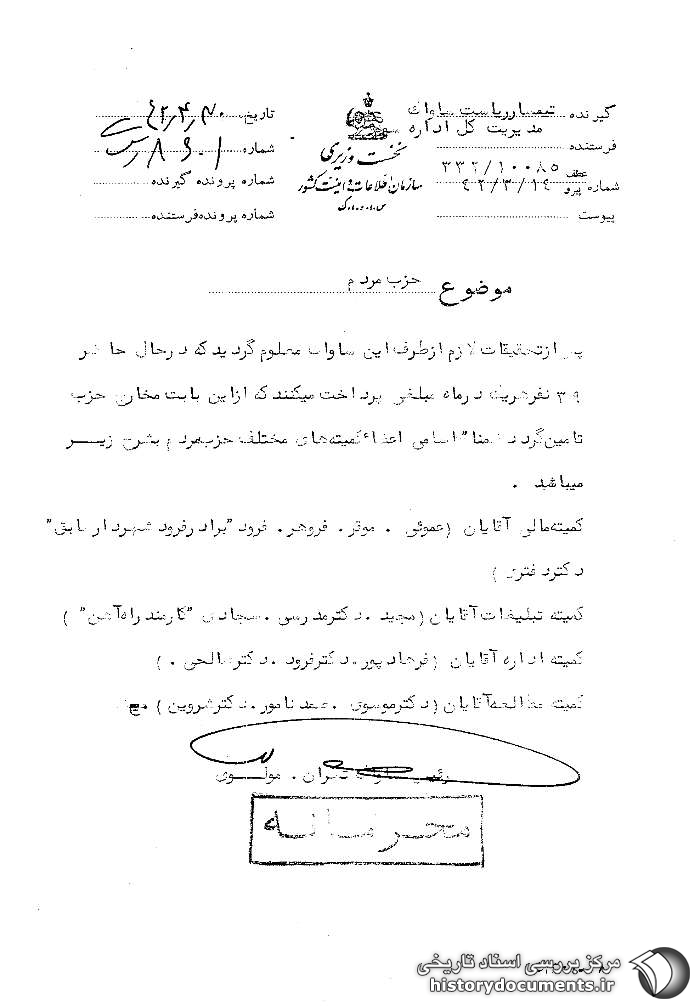 گیرنده تیمسار ریاست ساواک
مدیریت کل اداره سوم
فرستنده
عطف ۳۳۲/۱۰۰۸۵
شماره پیرو ۴۲/۳/۱۴
پیوست
نخست وزیری
سازمان اطلاعات و امنیت کشور
س.ا.و.ا.ک
تاریخ ۴۲٫۴٫۲۰
شماره
شماره پرونده گیرنده
شماره پرونده فرستنده
موضوع حزب مردم
پس از تحقیقات لازم از طرف این ساواک معلوم گردید که در حال حاضر
۳۹ نفر هریک در ماه مبلغی پرداخت میکنند که از این بابت مخارج حزب
تامین گردد ضمنا" اسامی اعضاء کمیته‌های مختلف حزب مردم بشرح زیر
میباشد .
کمیته مالی آقایان (عموئی . موثر . فروهر . فرود "برادر فرود شهردار سابق"
دکتر دفتری )
کمیته تبلیغات آقایان (مجید . دکتر مدرسی . سجادی "کارمند راه‌آهن" )
کمیته اداره آقایان (فرهاد پور . دکتر فرود . دکتر صالحی . )
کمیته مطالعه آقایان (دکتر موسوی . صمد نامور . دکتر شروین )
رئیس ساواک تهران . مولوی
محرمانه
مرکز بررسی اسناد تاریخی
historydocuments.ir